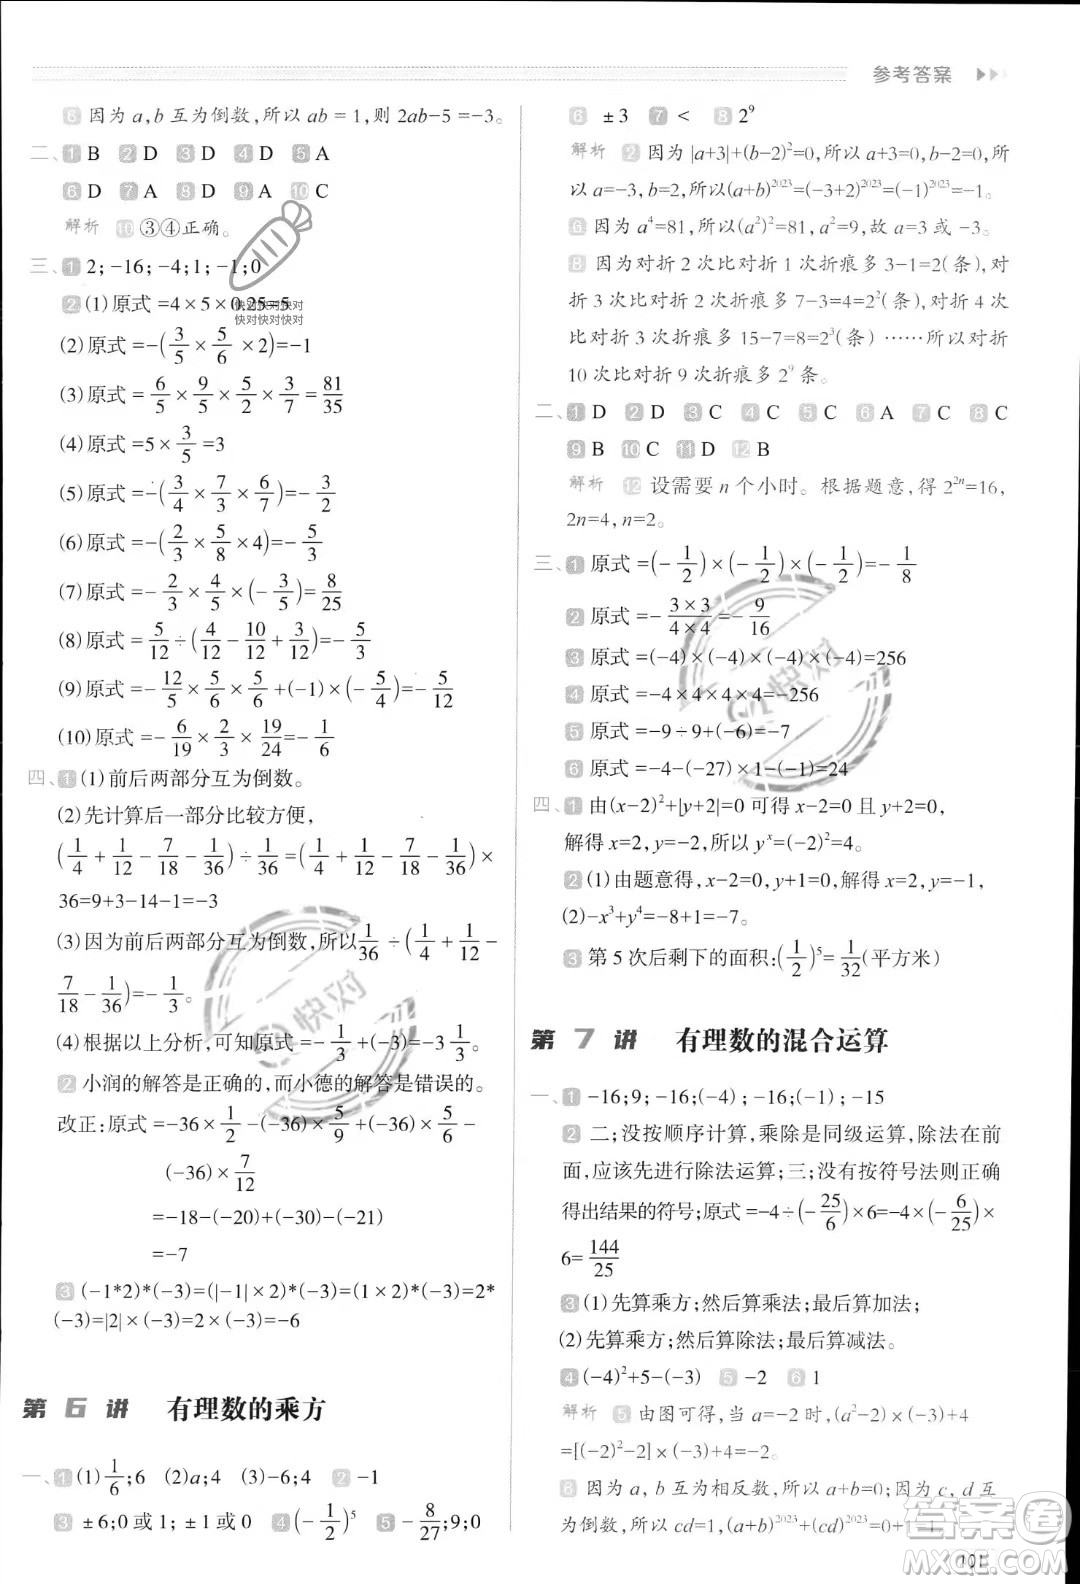 参考答案
6 因为a,b互为倒数,所以ab=1,则2ab-5=-3。
二、1 B 2 D 3 D 4 D 5 A
6 D 7 A 8 D 9 A 10 C
解析 10 ③④正确。
三、1 2;-16;-4;1;-1;0
2 (1)原式=4×5×0.25=5
快对快对快对
快对快对快对
(2)原式=-(3/5×5/6×2)=-1
(3)原式=6/5×9/5×5/2×3/7=81/35
(4)原式=5×3/5=3
(5)原式=-(3/4×7/3×6/7)=-3/2
(6)原式=-(2/3×5/8×4)=-5/3
(7)原式=-2/3×4/5×(-3/5)=8/25
(8)原式=5/12÷(4/12-10/12+3/12)=-5/3
(9)原式=-12/5×5/6×5/6+(-1)×(-5/4)=-5/12
(10)原式=-6/19×2/3×19/24=-1/6
四、1 (1)前后两部分互为倒数。
(2)先计算后一部分比较方便,
(1/4+1/12-7/18-1/36)÷1/36=(1/4+1/12-7/18-1/36)×
36=9+3-14-1=-3
(3)因为前后两部分互为倒数,所以1/36÷(1/4+1/12-
7/18-1/36)=-1/3。
(4)根据以上分析,可知原式=-1/3+(-3)=-3 1/3。
2 小润的解答是正确的,而小德的解答是错误的。
改正:原式=-36×1/2-(-36)×5/9+(-36)×5/6-
(-36)×7/12
=-18-(-20)+(-30)-(-21)
=-7
3 (-1*2)*(-3)=(|-1|×2)*(-3)=(1×2)*(-3)=2*
(-3)=|2|×(-3)=2×(-3)=-6
第6讲 有理数的乘方
一、1 (1)1/6;6 (2)a;4 (3)-6;4 2 -1
3 ±6;0或1;±1或0 4 (-1/2)⁵ 5 -8/27;9;0
6 ±3 7 < 8 2⁹
解析 2 因为|a+3|+(b-2)²=0,所以a+3=0,b-2=0,
所以a=-3,b=2,所以(a+b)²⁰²³=(-3+2)²⁰²³=(-1)²⁰²³=-1。
6 因为a⁴=81,所以(a²)²=81,所以a²=9,故a=3或-3。
8 因为对折2次比对折1次折痕多3-1=2(条),对
折3次比对折2次折痕多7-3=4=2²(条),对折4次
比对折3次折痕多15-7=8=2³(条)……所以对折
10次比对折9次折痕多2⁹条。
二、1 D 2 D 3 C 4 C 5 C 6 A 7 C 8 C
9 B 10 C 11 D 12 B
解析 12 设需要n个小时。根据题意,得2²ⁿ=16,
2n=4,n=2。
三、1 原式=(-1/2)×(-1/2)×(-1/2)=-1/8
2 原式=-3×3/4×4=-9/16
3 原式=(-4)×(-4)×(-4)×(-4)=256
4 原式=-4×4×4×4=-256
5 原式=-9÷9+(-6)=-7
6 原式=-4-(-27)×1-(-1)=24
四、1 由(x-2)²+|y+2|=0可得x-2=0且y+2=0,
解得x=2,y=-2,所以yˣ=(-2)²=4。
2 (1)由题意得,x-2=0,y+1=0,解得x=2,y=-1,
(2)-x³+y⁴=-8+1=-7。
3 第5次后剩下的面积:(1/2)⁵=1/32(平方米)
第7讲 有理数的混合运算
一、1 -16;9;-16;(-4);-16;(-1);-15
2 二;没按顺序计算,乘除是同级运算,除法在前
面,应该先进行除法运算;三;没有按符号法则正确
得出结果的符号;原式=-4÷(-25/6)×6=-4×(-6/25)×
6=144/25
3 (1)先算乘方;然后算乘法;最后算加法;
(2)先算乘方;然后算除法;最后算减法。
4 (-4)²+5-(-3) 5 -2 6 1
解析 5 由图可得,当a=-2时,(a²-2)×(-3)+4
=[(-2)²-2]×(-3)+4=-2。
6 因为a,b互为相反数,所以a+b=0;因为c,d互
为倒数,所以cd=1,(a+b)²⁰²³+(cd)²⁰²³=0+1=1
快对
快对
答案圈
MXQE.COM
101